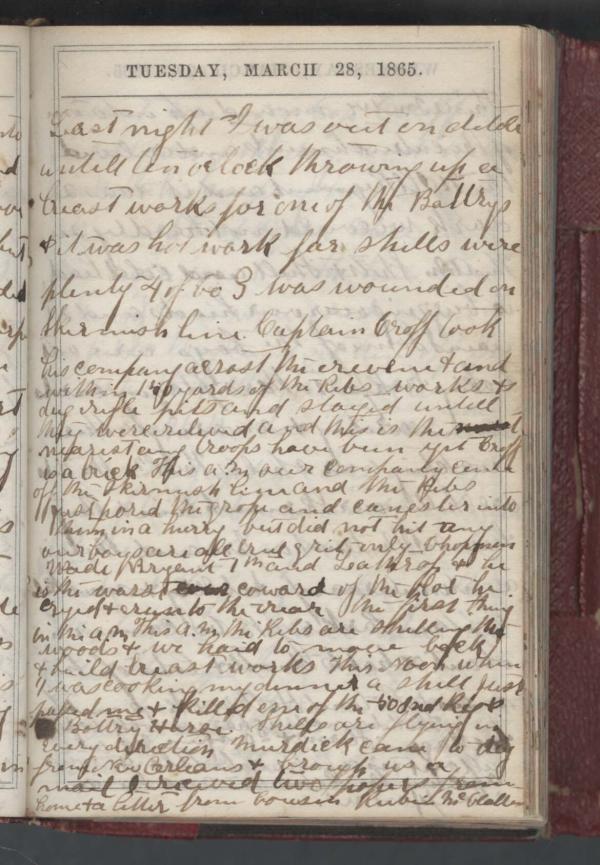 TUESDAY, MARCH 28, 1865.
Last night I was out on detale
untill ten oclock throwing up a
breast works for one of the Battrys
& it was hot work for shells were
plenty 4 of co G was wounded on
skirmish line. Captain Croff took
his company acrost the revene & and
within 140 yards of the Rebs works &
dug rifle pits and stayed untill
they were relieved and this is the
nearist any troops have been yet Croff
is a brick This a.m our company came
off the skirmish line and the Rebs
just pored the grape and canester into
them in a hurry but did not hit any
our boys are all true grit only
Bryent & he
is the warst coward of the lot he
cryed & run to the rear the first thing
in the a.m This a.m the Rebs are shelling the
woods & we haid to move back
& build breast works This noon when
I was cooking my dinner a shell just
passed me & killed one of the
Battry Horse shells are flying in
every direction Murdick came to day
from New Orleans & brough us a
mail I recieved two papers from
home & a letter from cousin Ruben McClellan